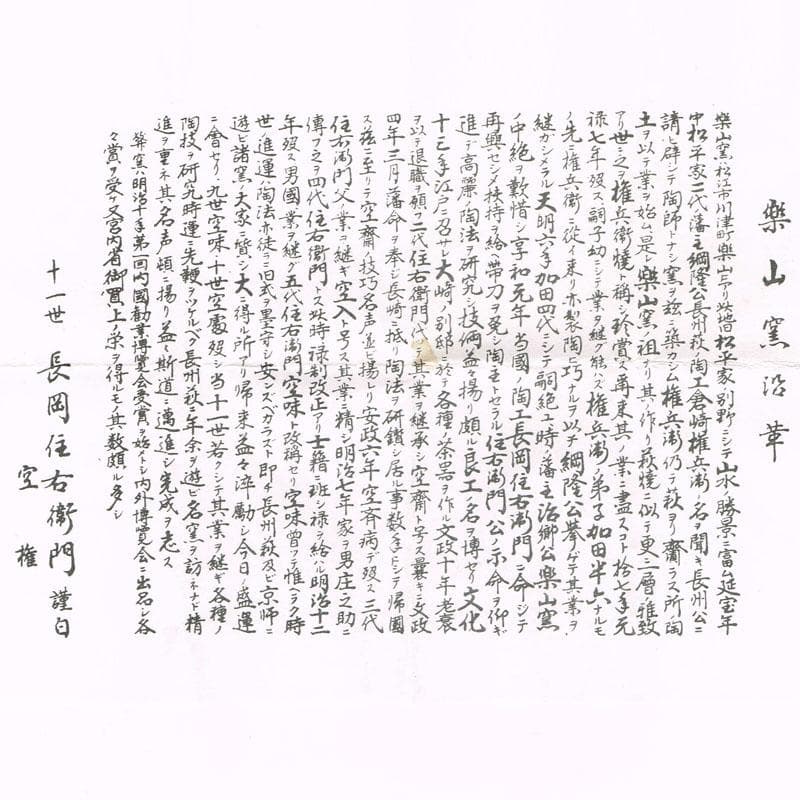 樂山窯沿革
樂山窯ハ松江市川津町樂山ニアリ此地旧松平家別野ニシテ山水ノ勝景ニ富ム延宝年
中松平家二代藩主綱隆公長州萩ノ陶工倉崎権兵衛ノ名ヲ聞キ長州公ニ
請ヒ辟シテ陶師トナシ窯ヲ茲ニ築カシム権兵衛仍テ萩ヨリ齎ラス所陶
土ヲ以テ業ヲ始ム是レ樂山窯ノ祖ナリ其ノ作リ萩焼ニ似テ更ニ一層雅致
アリ世ニ之ヲ権兵衛焼ト稱シ珍賞ス爾来其ノ業ニ盡スコト拾七年元
禄七年歿ス嗣子幼ニシテ業ヲ継ク能ハズ権兵衛ノ弟子加田半六ナルモ
ノ先ニ権兵衛ニ從イ来リ亦製陶ニ巧ナルヲ以テ綱隆公挙ゲテ其業ヲ
継ガシメラル天明六年加田四代ニシテ嗣絶エ時ノ藩主治郷公樂山窯
ノ中絶ヲ歎惜シ享和元年当國ノ陶工長岡住右衛門ニ命シテ
再興セシメ扶持ヲ給ヒ帯刀ヲ免シ陶主トセラル住右衛門公ノ示命ヲ仰ギ
進デ高麗ノ陶法ヲ研究シ技倆益揚リ頗ル良工ノ名ヲ博セリ文化
十三年江戸ニ召サレ大崎ノ別邸ニ於テ各種ノ茶器ヲ作ル文政十年老衰
ヲ以テ退職ヲ願フ二代住右衛門代テ其業ヲ継承シ空齋ト号ス曩キニ文政
四年三月藩命ヲ奉ジ長崎ニ抵リ陶法ヲ研鑽シ居ル事数年ヒシテ帰國
ス茲ニ至リテ空齋ノ技巧名声並ビ揚レリ安政六年空斉病デ歿ス三代
住右衛門父ノ業ヲ継ギ空入ト号ス其業ニ精シ明治七年家ヲ男庄之助ニ
傳フ之ヲ四代住右衛門トス此時禄制改正アリ士籍ニ班シ禄ヲ給ハル明治十二
年歿ス男國業ヲ継グ五代住右衛門空味ト改稱セリ空味曽ツテ惟ヘラク時
世ノ進運ハ陶法亦徒ラニ旧式ヲ墨守シ安ンズベカラズト即チ長州ノ萩及ビ京師ニ
遊ビ諸窯ノ大家ニ質シ大ニ得ル所アリ帰来益々淬勵シ今日ノ盛運
ニ會セリ九世空味十世空處歿シ当十一世若クシテ其業ヲ継ギ各種ノ
陶技ヲ研究時運ニ先鞭ヲツケルベク長州萩ニ年余ヲ遊ビ名窯ヲ訪ネナド精
進ヲ重ネ其ノ名声頓ニ揚リ益々斯道ニ邁進シ完成ヲ志ス
弊窯ハ明治十年第一回内國勧業博覧会受賞ヲ始メトシ内外博覧会ニ出品シ各
々賞ヲ受ケ又宮内省御買上ノ栄ヲ得ルモノ其数頗ル多シ
十一世 長岡住右衞門 謹白
空権